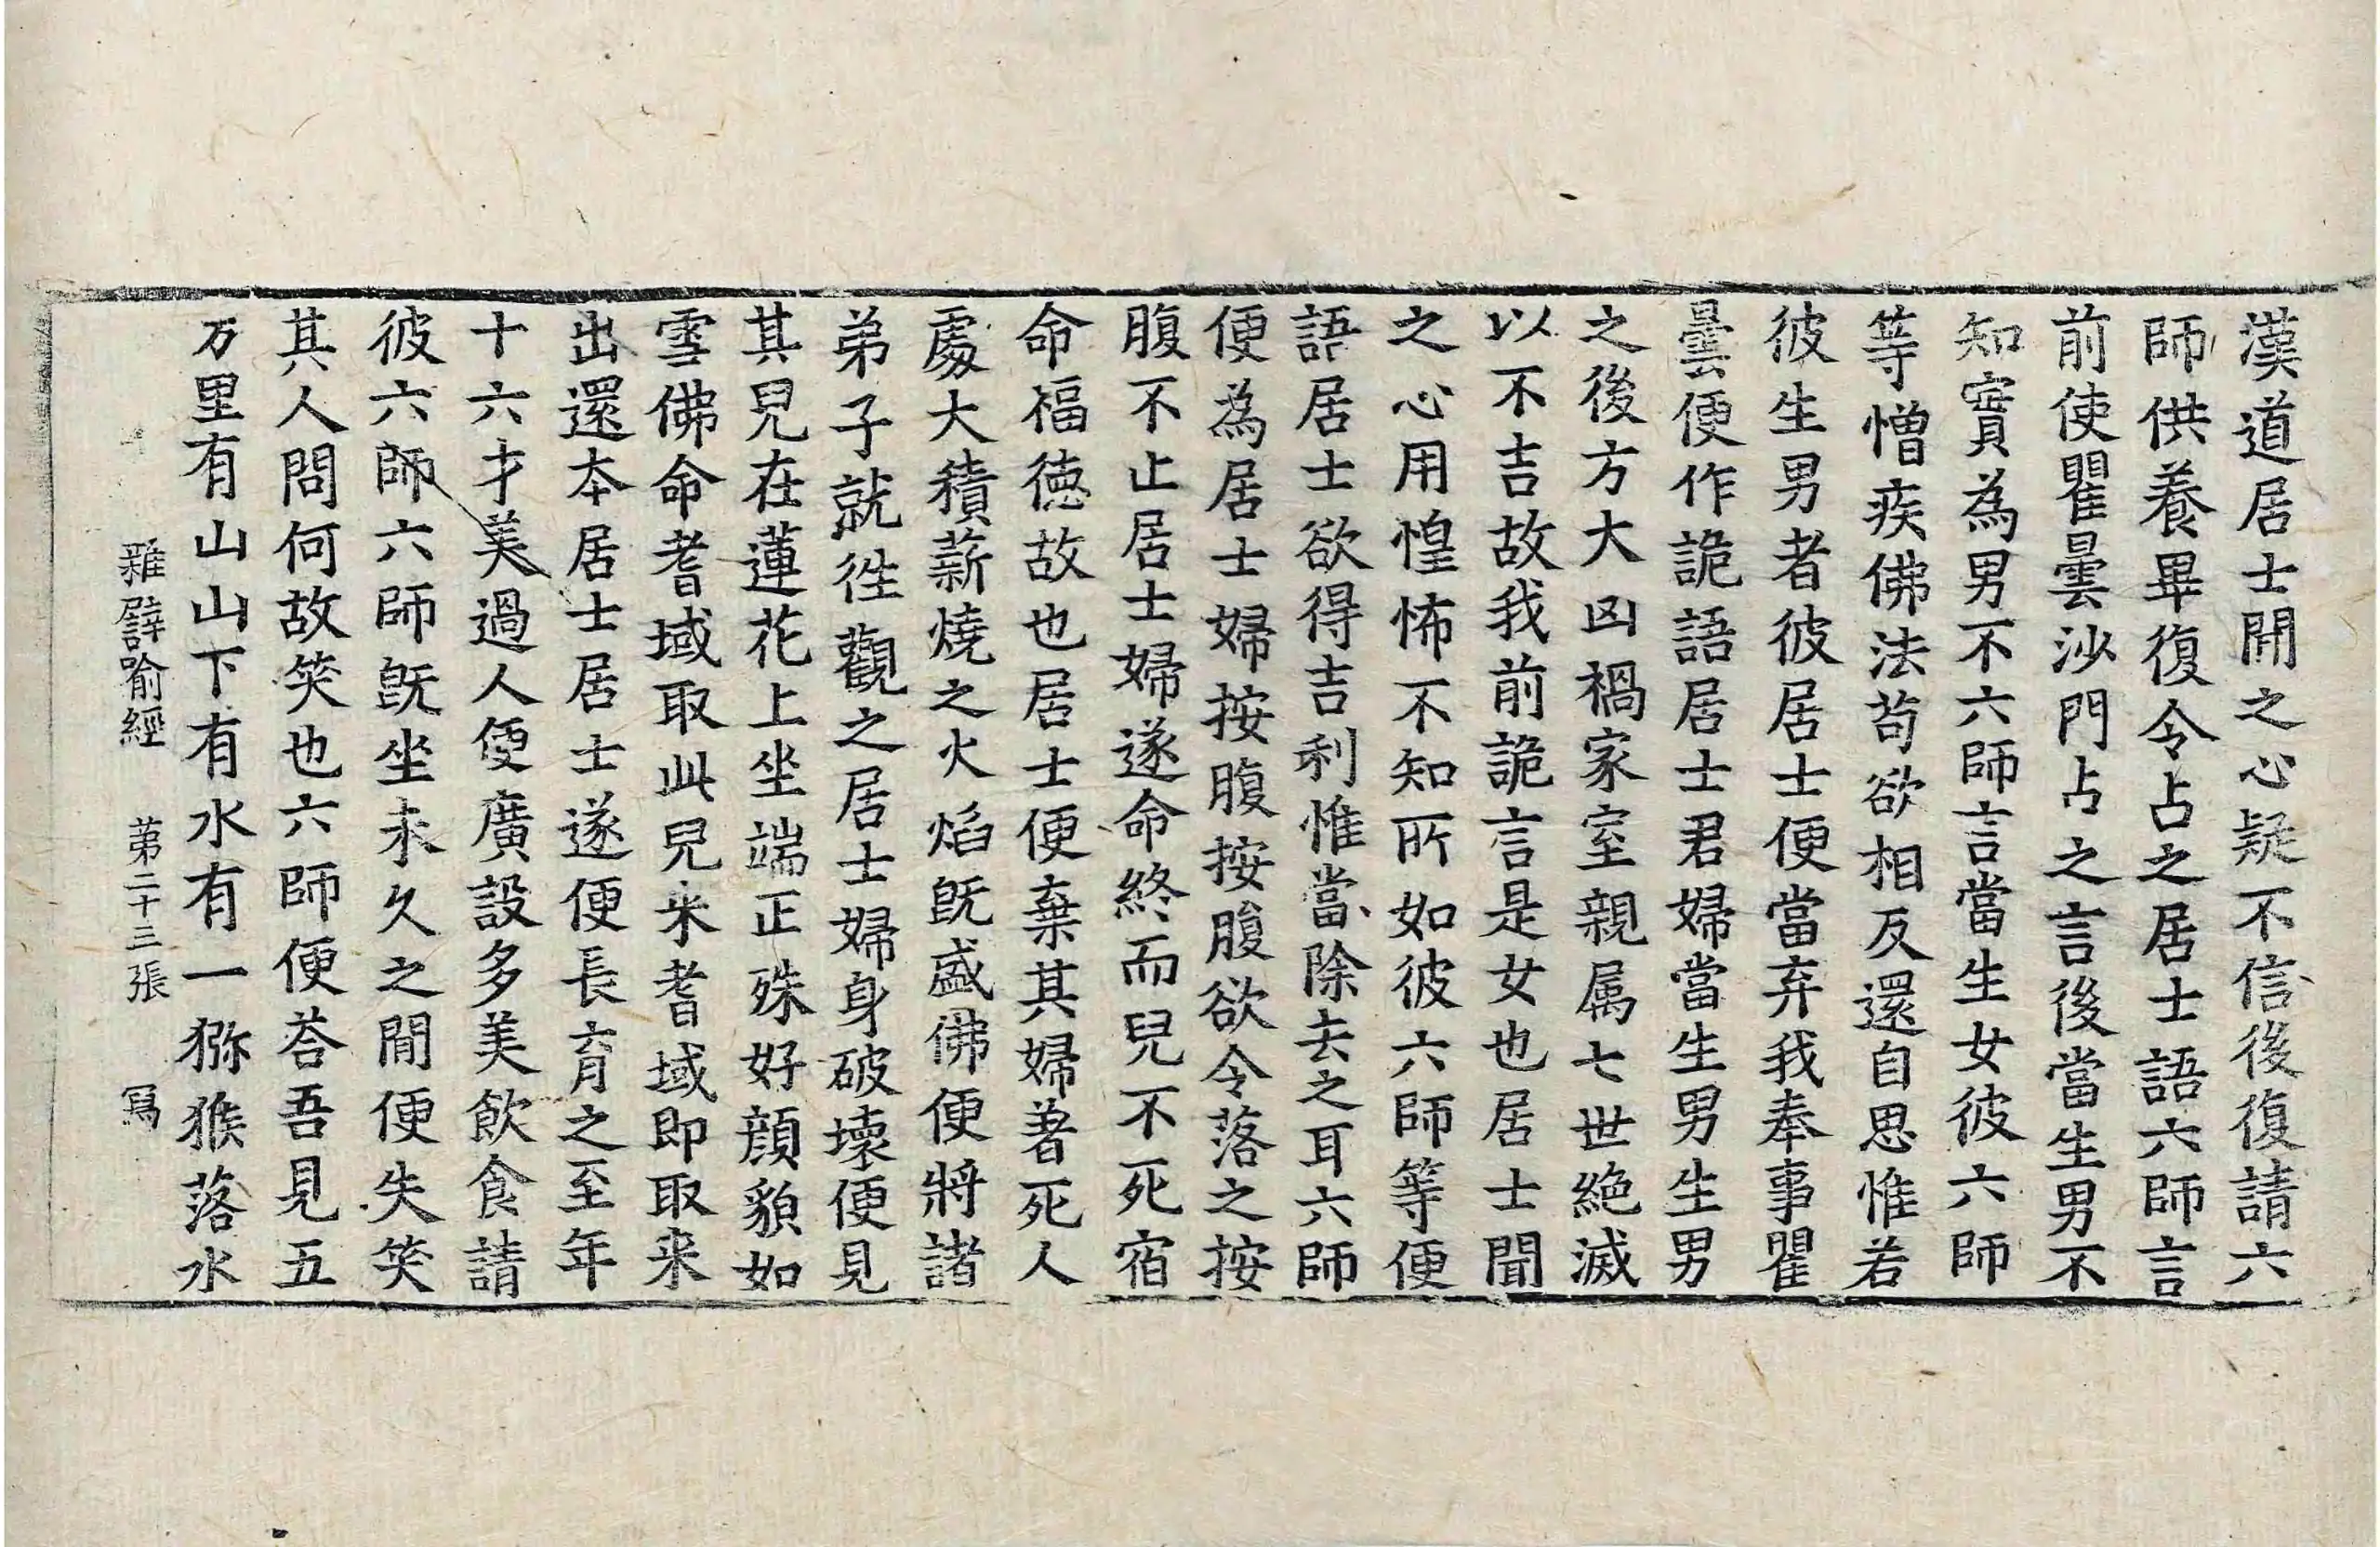 漢道居士開之心疑不信後復請六
師供養畢復令占之居士語六師言
前使瞿曇沙門占之言後當生男不
知實為男不六師言當生女彼六師
等憎疾佛法苟欲相反還自思惟若
彼生男者彼居士便當弃我奉事瞿
曇便作詭語居士君婦當生男生男
之後方大凶禍家室親属七世絶滅
以不吉故我前詭言是女也居士聞
之心用惶怖不知所如彼六師等便
語居士欲得吉利惟當除去之耳六師
便為居士婦按腹按腹欲令落之按
腹不止居士婦遂命終而兒不死宿
命福徳故也居士便棄其婦著死人
處大積薪燒之火焰既盛佛便將諸
弟子就徃觀之居士婦身破壞便見
其兒在蓮花上坐端正殊好顔貌如
雪佛命耆域取此兒来耆域即取来
出還本居士居士遂便長育之至年
十六才美過人便廣設多美飲食請
彼六師六師既坐未久之間便失笑
其人問何故笑也六師便荅吾見五
万里有山山下有水有一猕猴落水
雜譬喻經 第二十三張 冩